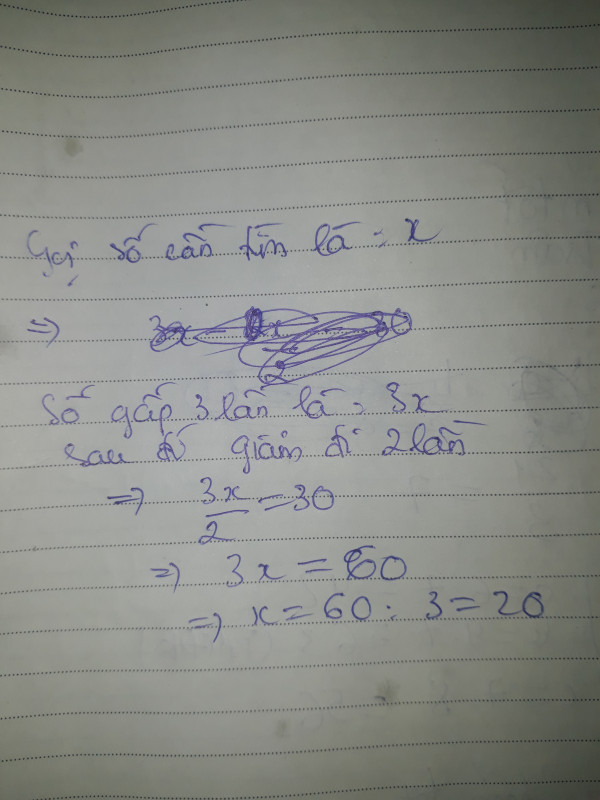 Gọi số cần tìm là : x
=>
Số gấp 3 lần là : 3x
sau đó giảm đi 2 lần
=> 3x/2 = 30
=> 3x = 60
=> x = 60 : 3 = 20